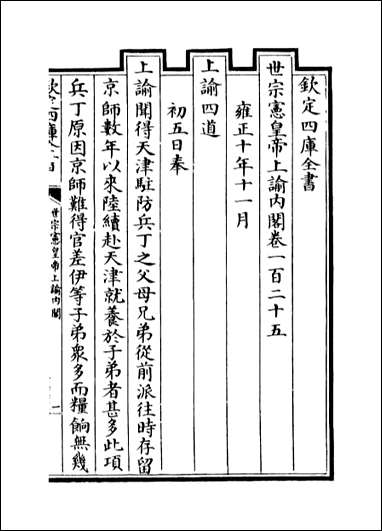 欽定四庫全書
世宗憲皇帝上諭內閣卷一百二十五
雍正十年十一月
上諭四道
初五日奉
上諭聞得天津駐防兵丁之父母兄弟從前派往時存留
京師數年以來陸續赴天津就養於子弟者甚多此項
兵丁原因京師難得官差伊等子弟衆多而糧餉無幾
世宗憲皇帝上諭內閣